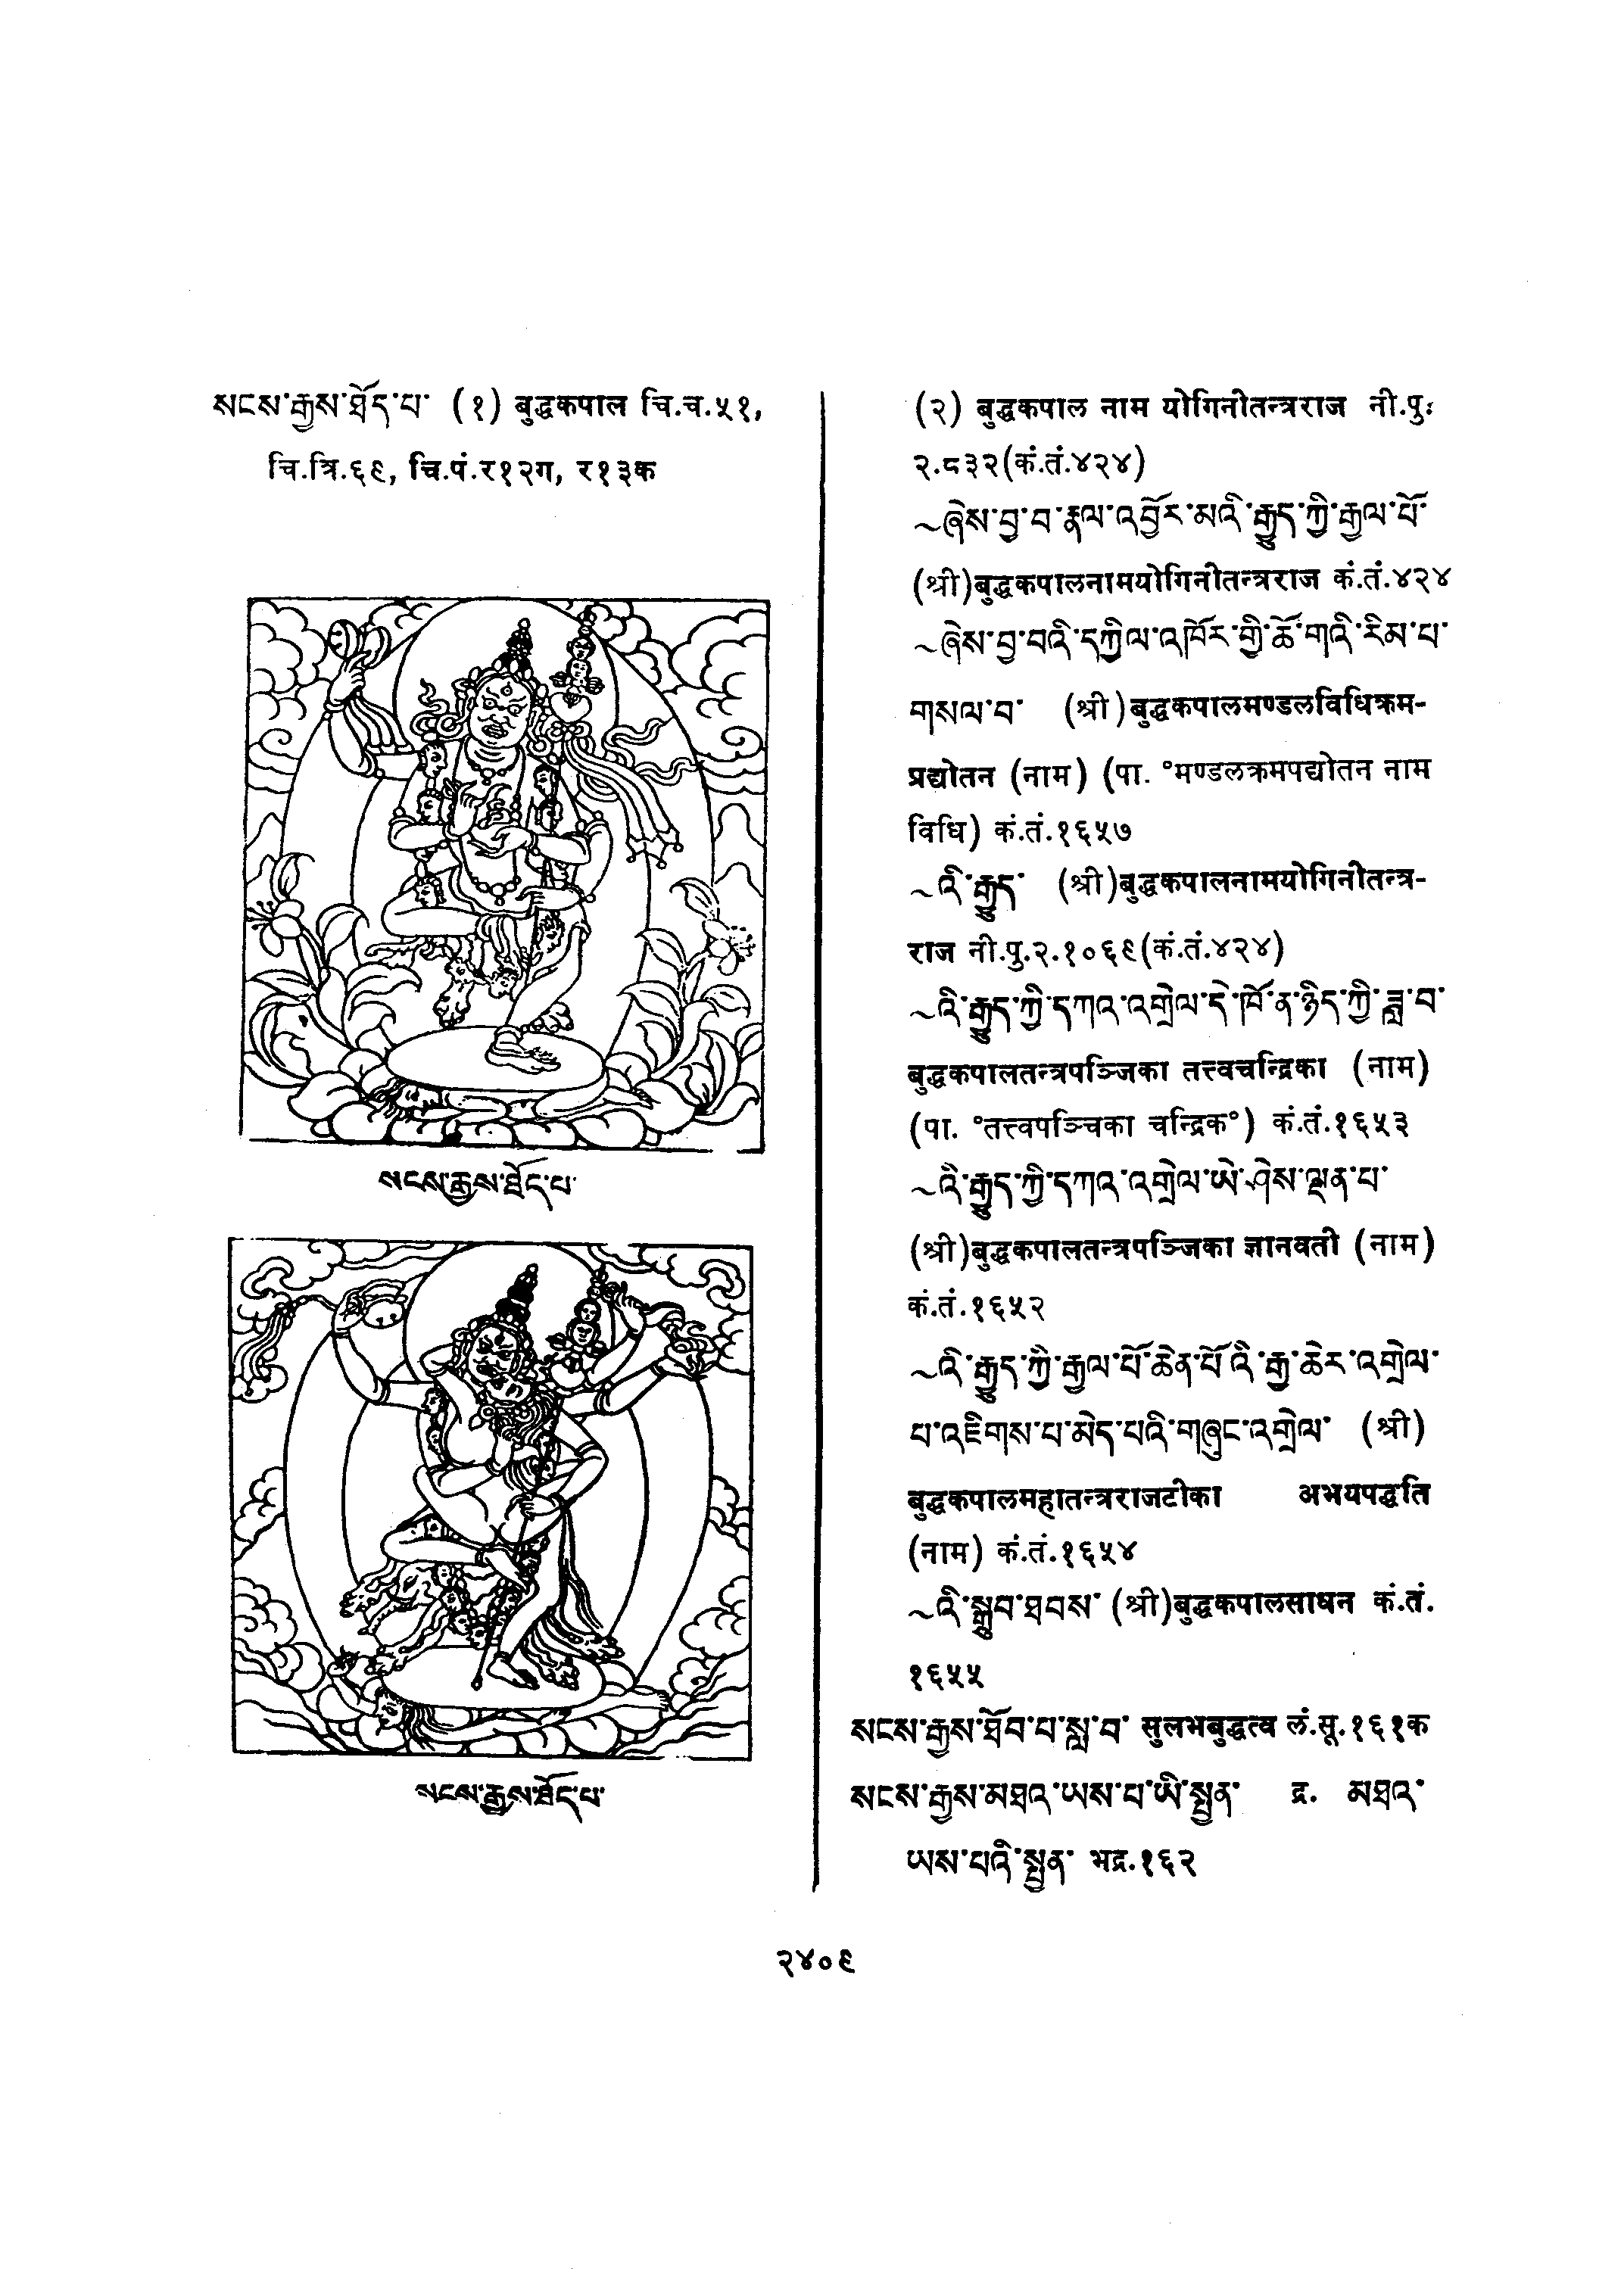 སངས་རྒྱས་ཐོད་པ་ (१) बुद्धकपाल चि.च.५१,
चि.त्रि.६९, चि.पं.र१२ग, र१३क
སངས་རྒྱས་ཐོད་པ་
སངས་རྒྱས་ཐོད་པ་
(२) बुद्धकपाल नाम योगिनीतन्त्रराज नी.पु.
२.८३२(कं.तं.४२४)
~ཞེས་བྱ་བ་རྣལ་འབྱོར་མའི་རྒྱུད་ཀྱི་རྒྱལ་པོ་
(श्री)बुद्धकपालनामयोगिनीतन्त्रराज कं.तं.४२४
~ཞེས་བྱ་བའི་དཀྱིལ་འཁོར་གྱི་ཆོ་གའི་རིམ་པ་
གསལ་བ་ (श्री)बुद्धकपालमण्डलविधिक्रम-
प्रद्योतन (नाम) (पा. °मण्डलक्रमपद्योतन नाम
विधि) कं.तं.१६५७
~འི་རྒྱུད་ (श्री)बुद्धकपालनामयोगिनीतन्त्र-
राज नी.पु.२.१०६९(कं.तं.४२४)
~འི་རྒྱུད་ཀྱི་དཀའ་འགྲེལ་དེ་ཁོ་ན་ཉིད་ཀྱི་ཟླ་བ་
बुद्धकपालतन्त्रपञ्जिका तत्त्वचन्द्रिका (नाम)
(पा. °तत्त्वपञ्चिका चन्द्रिक°) कं.तं.१६५३
~འི་རྒྱུད་ཀྱི་དཀའ་འགྲེལ་ཡེ་ཤེས་ལྡན་པ་
(श्री)बुद्धकपालतन्त्रपञ्जिका ज्ञानवती (नाम)
कं.तं.१६५२
~འི་རྒྱུད་ཀྱི་རྒྱལ་པོ་ཆེན་པོའི་རྒྱ་ཆེར་འགྲེལ་
པ་འཇིགས་པ་མེད་པའི་གཞུང་འགྲེལ་ (श्री)
बुद्धकपालमहातन्त्रराजटीका अभयपद्धति
(नाम) कं.तं.१६५४
~འི་སྒྲུབ་ཐབས་ (श्री)बुद्धकपालसाधन कं.तं.
१६५५
སངས་རྒྱས་ཐོབ་པ་སླ་བ་ सुलभबुद्धत्व लं.सू.१६१क
སངས་རྒྱས་མཐའ་ཡས་པ་ཡི་སྤྱན་ द्र. མཐའ་
ཡས་པའི་སྤྱན་ भद्र.१६२
२४०९